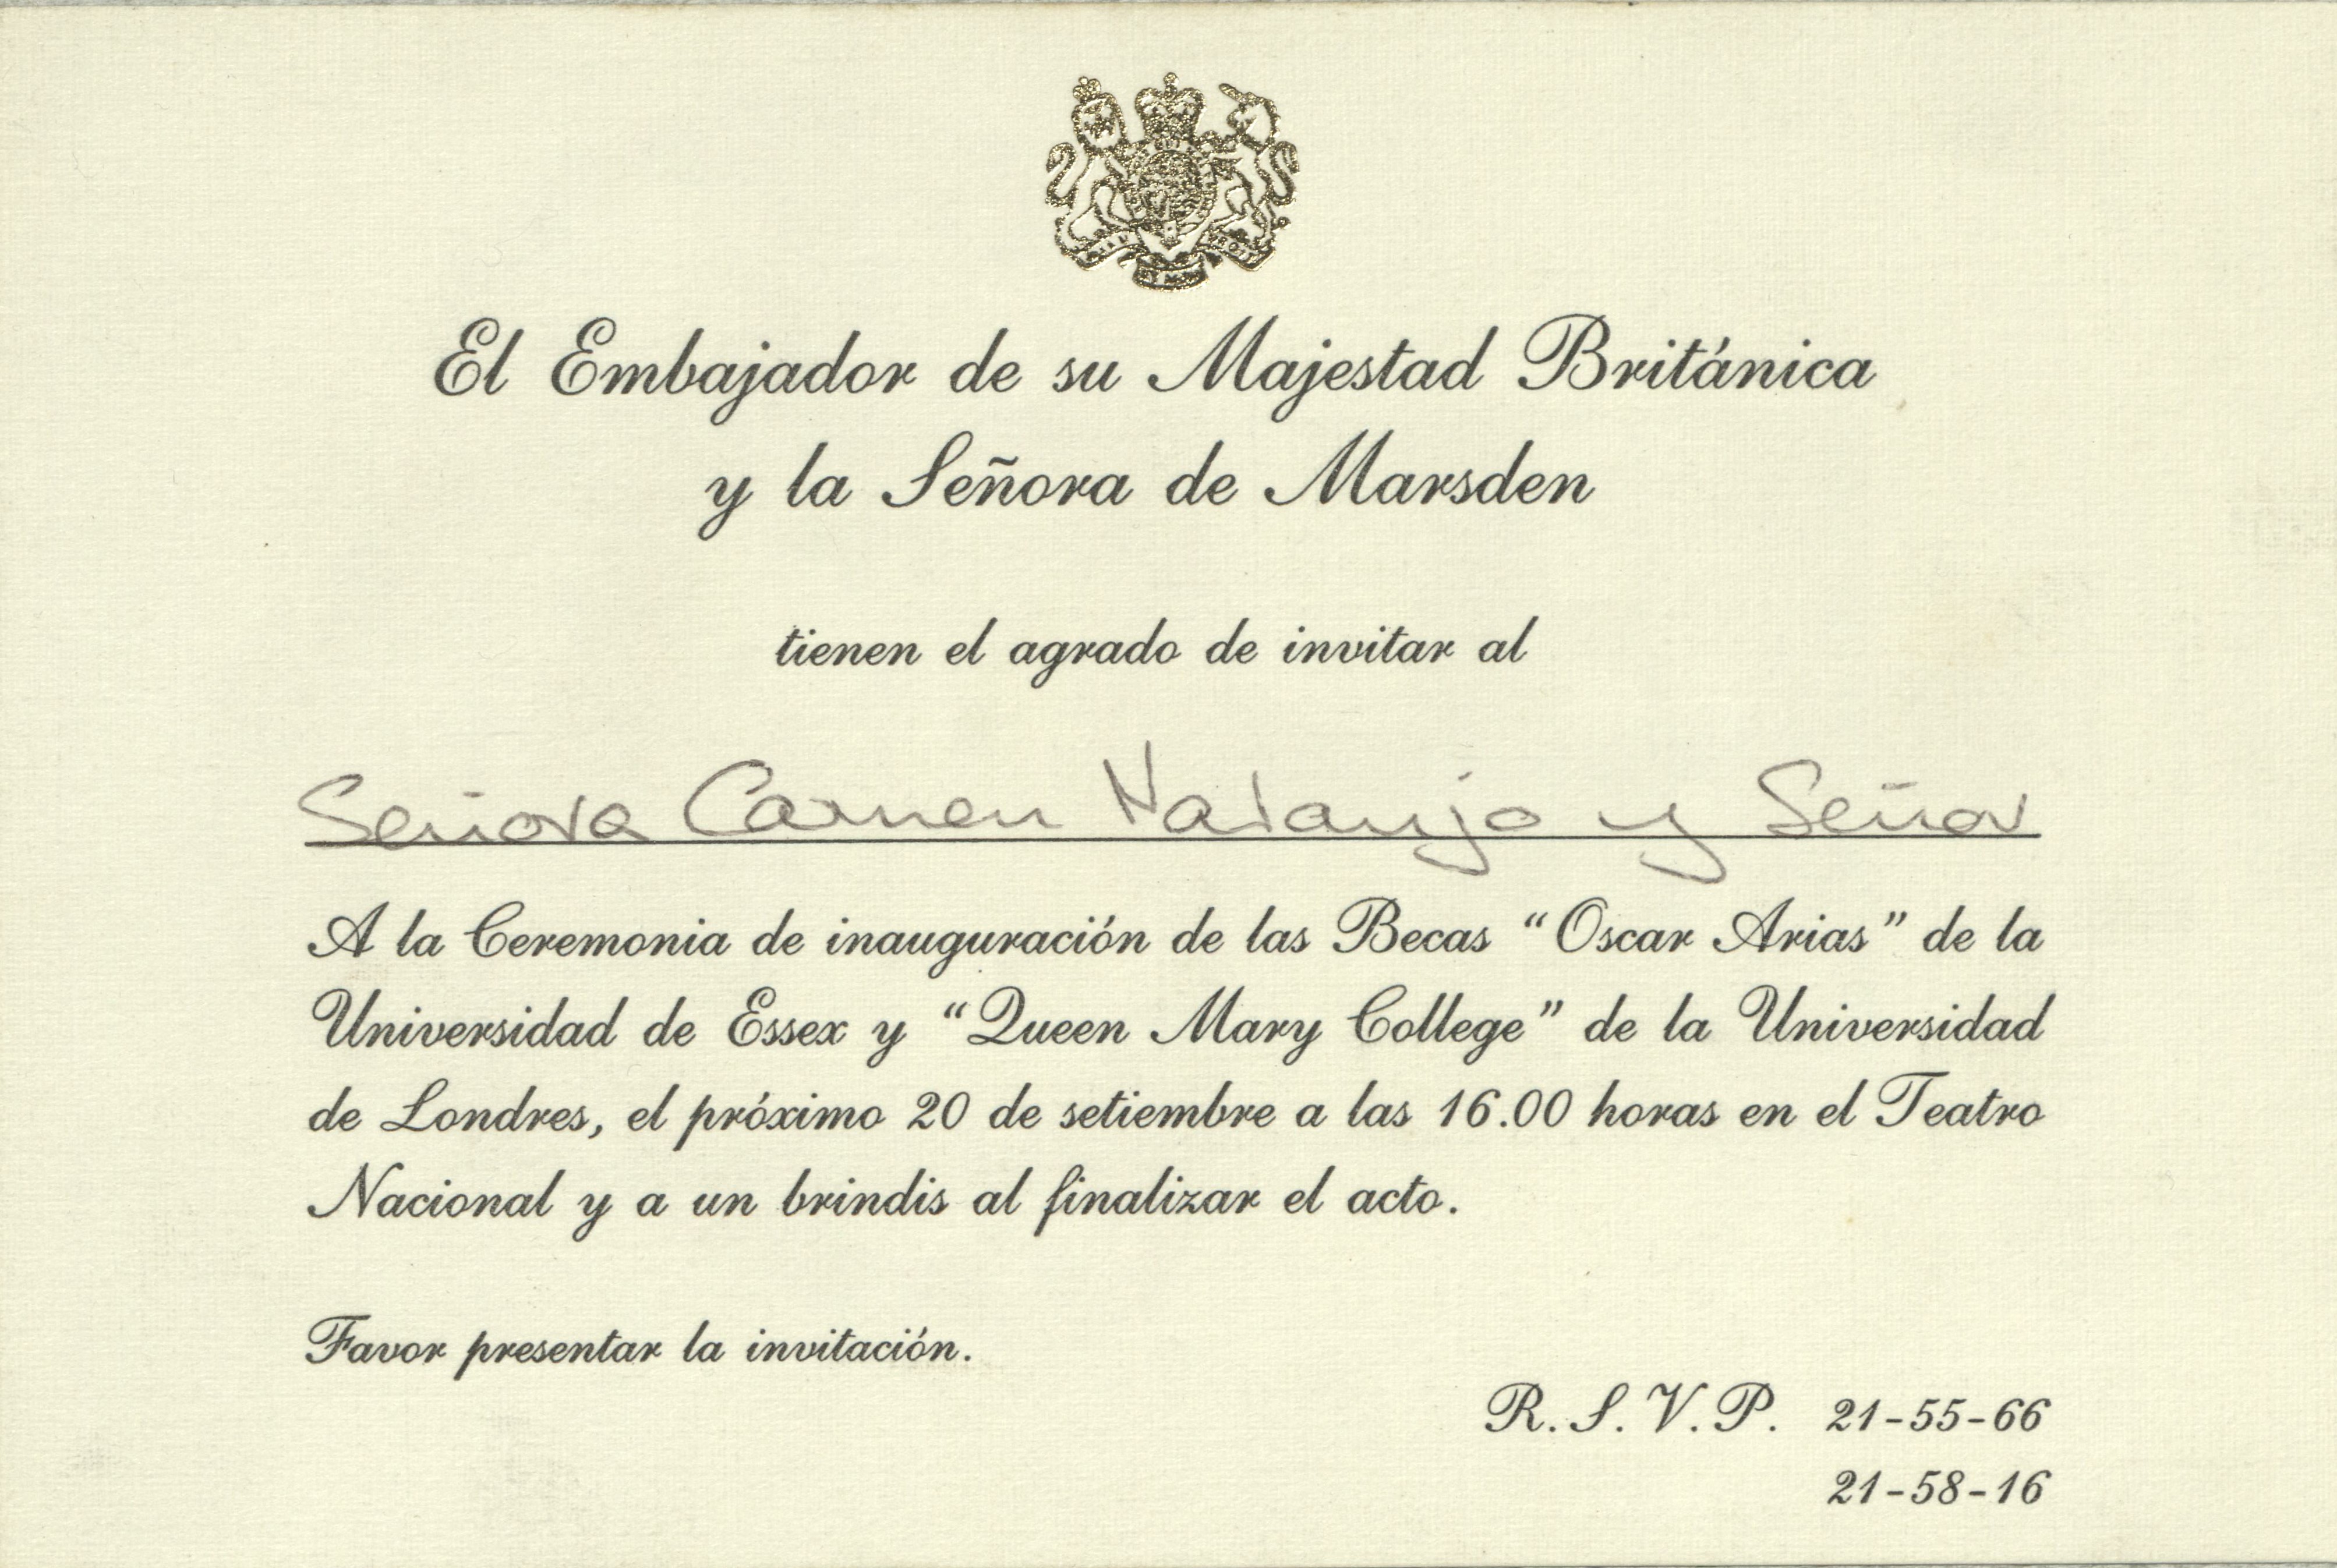 El Embajador de su Majestad Británica
y la Señora de Marsden
tienen el agrado de invitar al
Señora Carmen Naranjo y Señor
A la Ceremonia de inauguración de las Becas “Oscar Arias” de la
Universidad de Essex y “Queen Mary College” de la Universidad
de Londres, el próximo 20 de setiembre a las 16.00 horas en el Teatro
Nacional y a un brindis al finalizar el acto.
Favor presentar la invitación.
R.S.V.P. 21-55-66
21-58-16